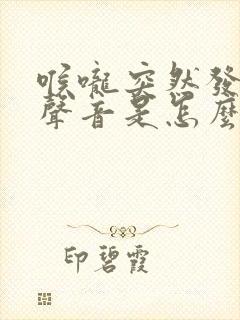 喉嚨突然發
聲音是怎麼
印碧霞